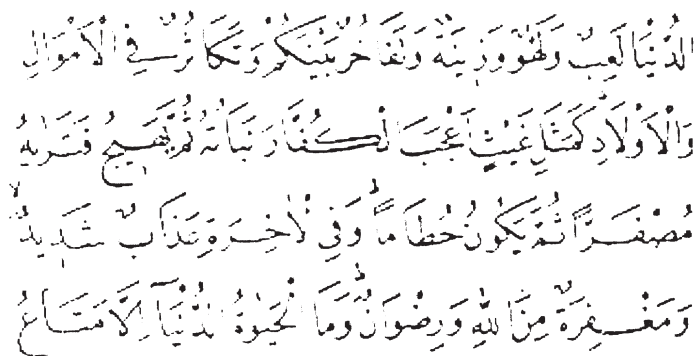 الدُّنْيَا لَعِبٌ وَلَهْوٌ وَزِينَةٌ وَتَفَاخُرٌ بَيْنَكُمْ وَتَكَاثُرٌ فِي الْأَمْوَالِ
وَالْأَوْلَادِ كَمَثَلِ غَيْثٍ أَعْجَبَ الْكُفَّارَ نَبَاتُهُ ثُمَّ يَهِيجُ فَتَرٰىهُ
مُصْفَرًّا ثُمَّ يَكُونُ حُطَامًا ۖ وَفِي الْاٰخِرَةِ عَذَابٌ شَدِيدٌ ۙ
وَمَغْفِرَةٌ مِنَ اللّٰهِ وَرِضْوَانٌ ۖ وَمَا الْحَيٰوةُ الدُّنْيَآ اِلَّا مَتَاعُ